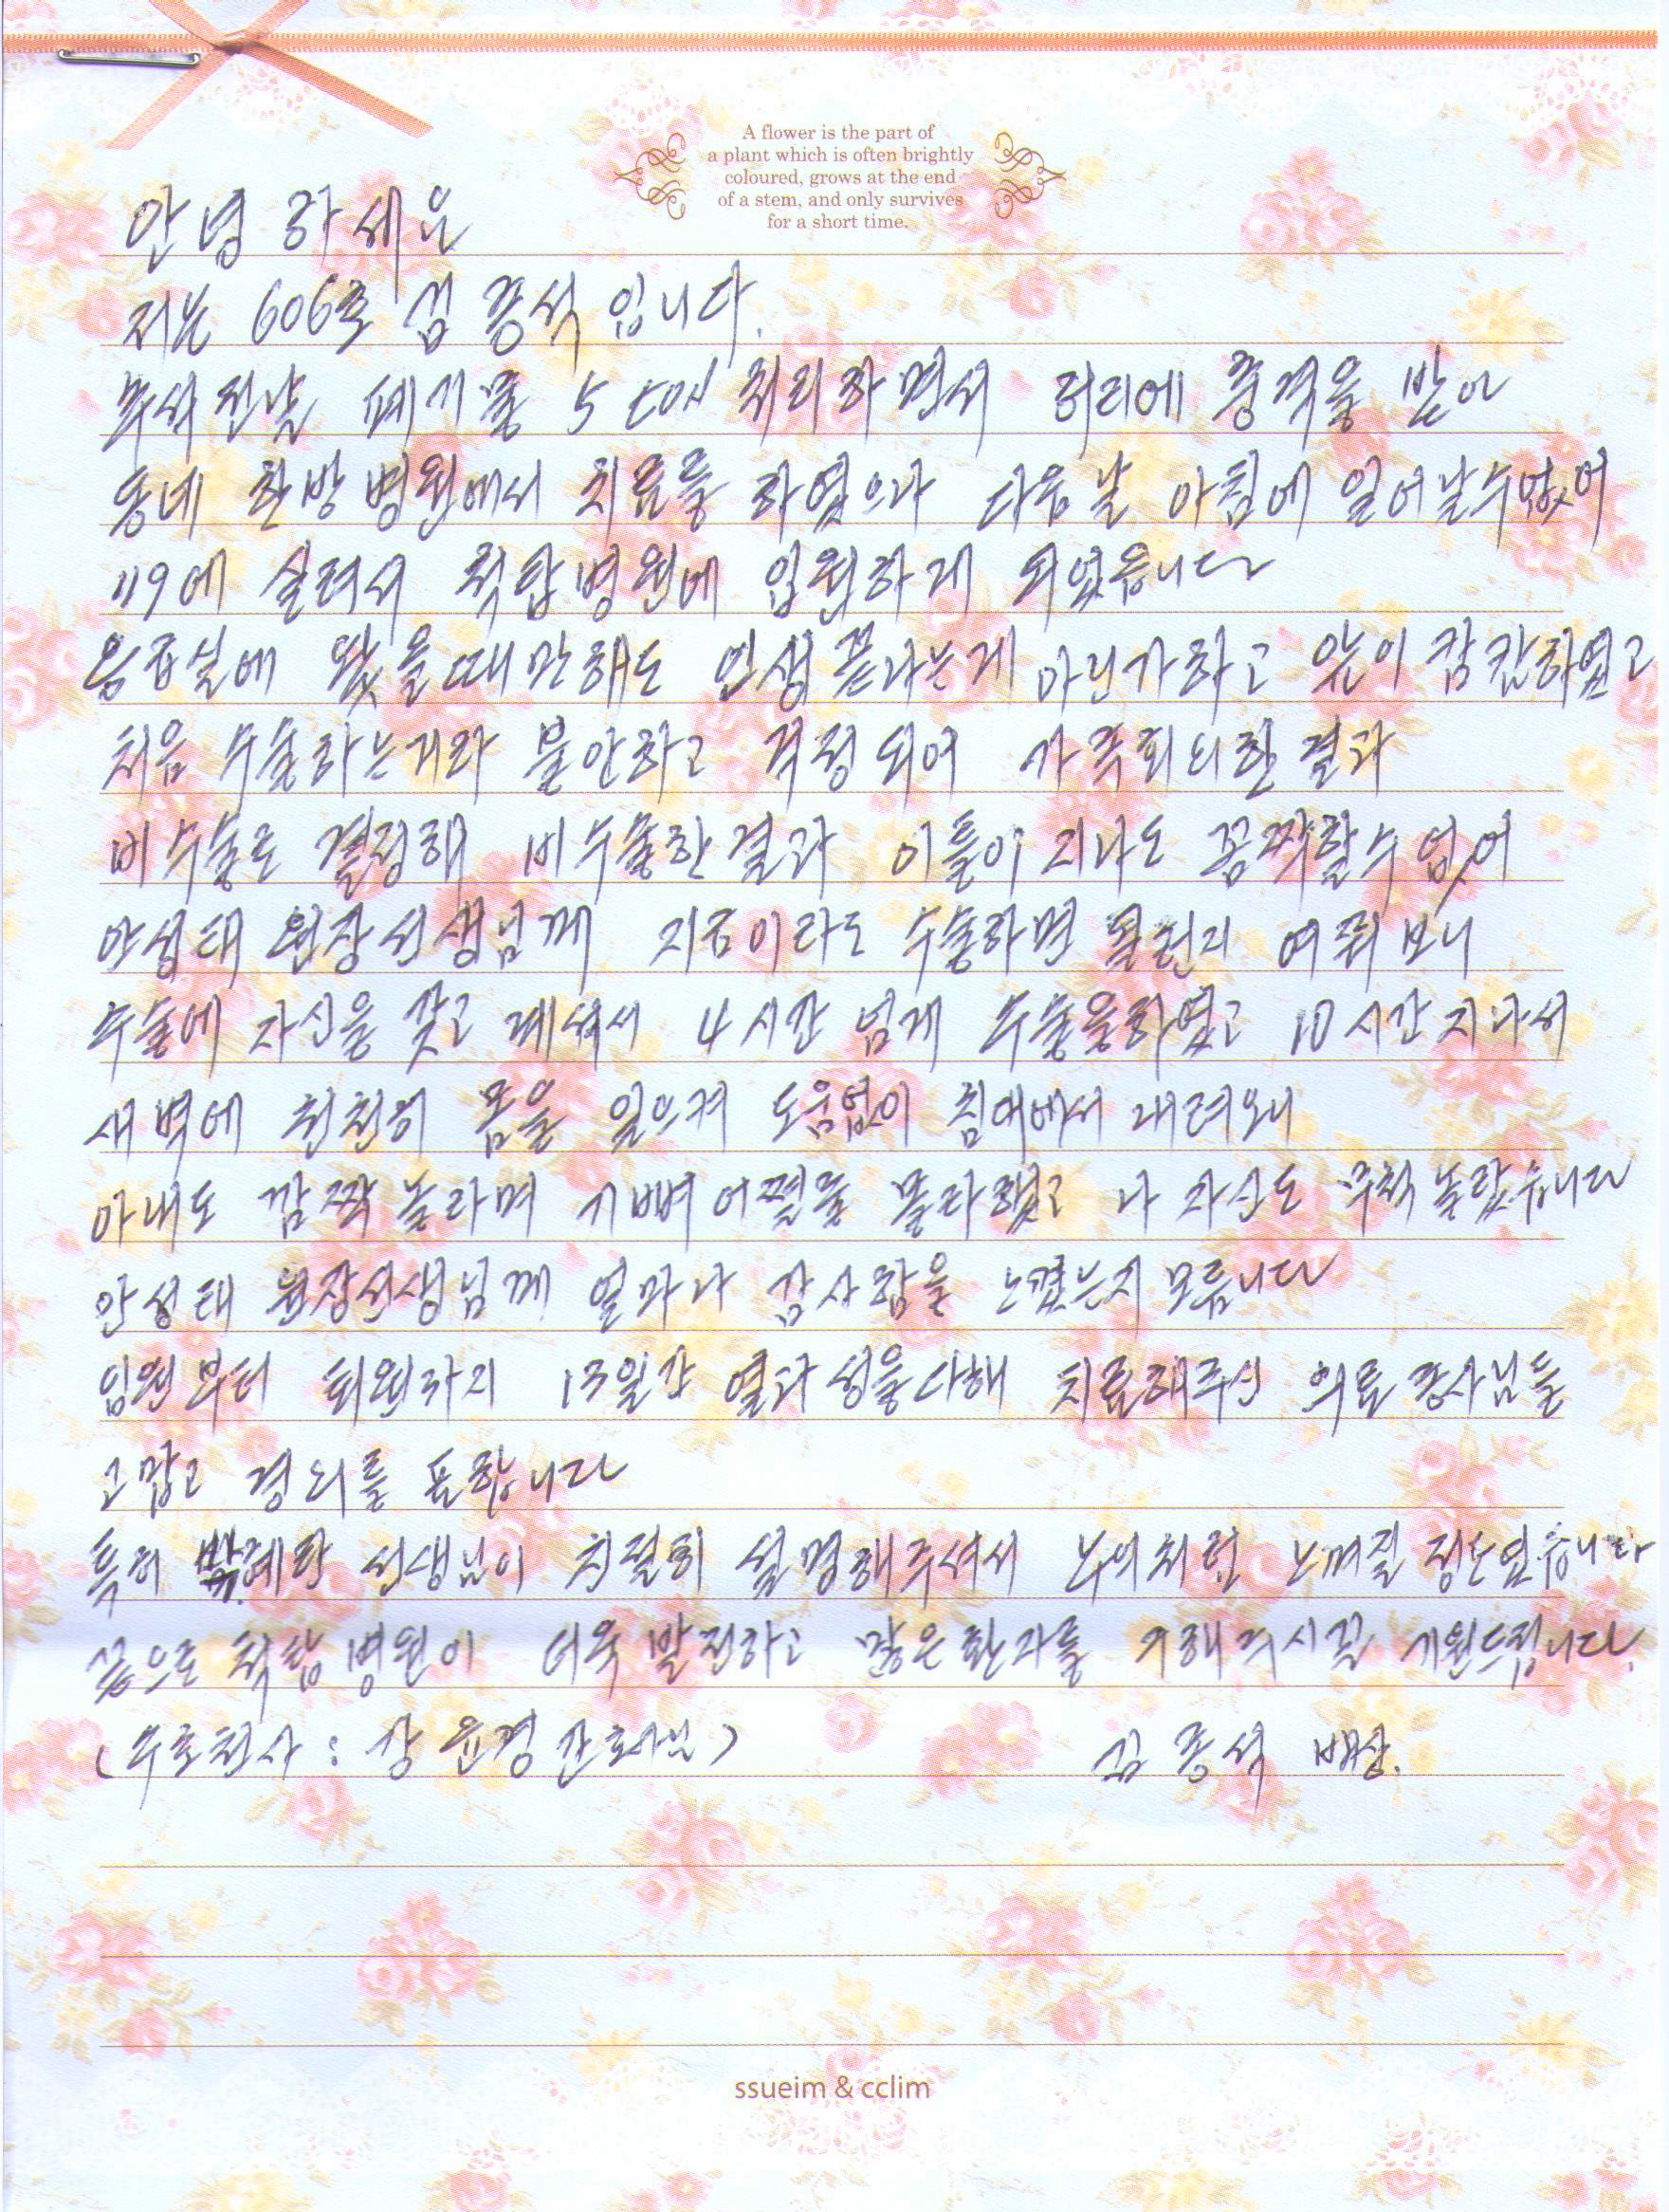 A flower is the part of
a plant which is often brightly
coloured, grows at the end
of a stem, and only survives
for a short time.
안녕하세요
저는 606호 김종석입니다.
추석전날 폐기물 5 ton 처리하면서 허리에 충격을 받아
동네 한방병원에서 치료를 하였으나 다음날 아침에 일어날수없어
119에 실려서 척탑병원에 입원하게 되었읍니다
응급실에 왔을때만해도 인생 끝나는게 아닌가하고 앞이 캄캄하였고
처음 수술하는거라 불안하고 걱정되어 가족회의한 결과
비수술로 결정해 비수술한 결과 이틀이 지나도 꼼짝할수 없어
안성태 원장선생님께 지금이라도 수술하면 여쭤보니
수술에 자신을 갖고 계셔서 4시간 넘게 수술을하였고 10시간 지나서
새벽에 천천히 몸을 일으켜 도움없이 침대에서 내려오니
아내도 깜짝 놀라며 기뻐 어쩔줄 몰라했고 나 자신도 무척 놀랐습니다
안성태 원장선생님께 얼마나 감사함을 느꼈는지 모릅니다
입원부터 퇴원까지 13일간 열과 성을 다해 치료해주신 의료종사님들
고맙고 경의를 표합니다
특히 선생님이 친절히 설명해주셔서 누이처럼 느껴질 정도였습니다
끝으로 척탑병원이 더욱 발전하고 많은환자를 구해주시길 기원드립니다.
(수호천사 : 장윤경 간호사님) 김종석 배상.
ssueim & cclim